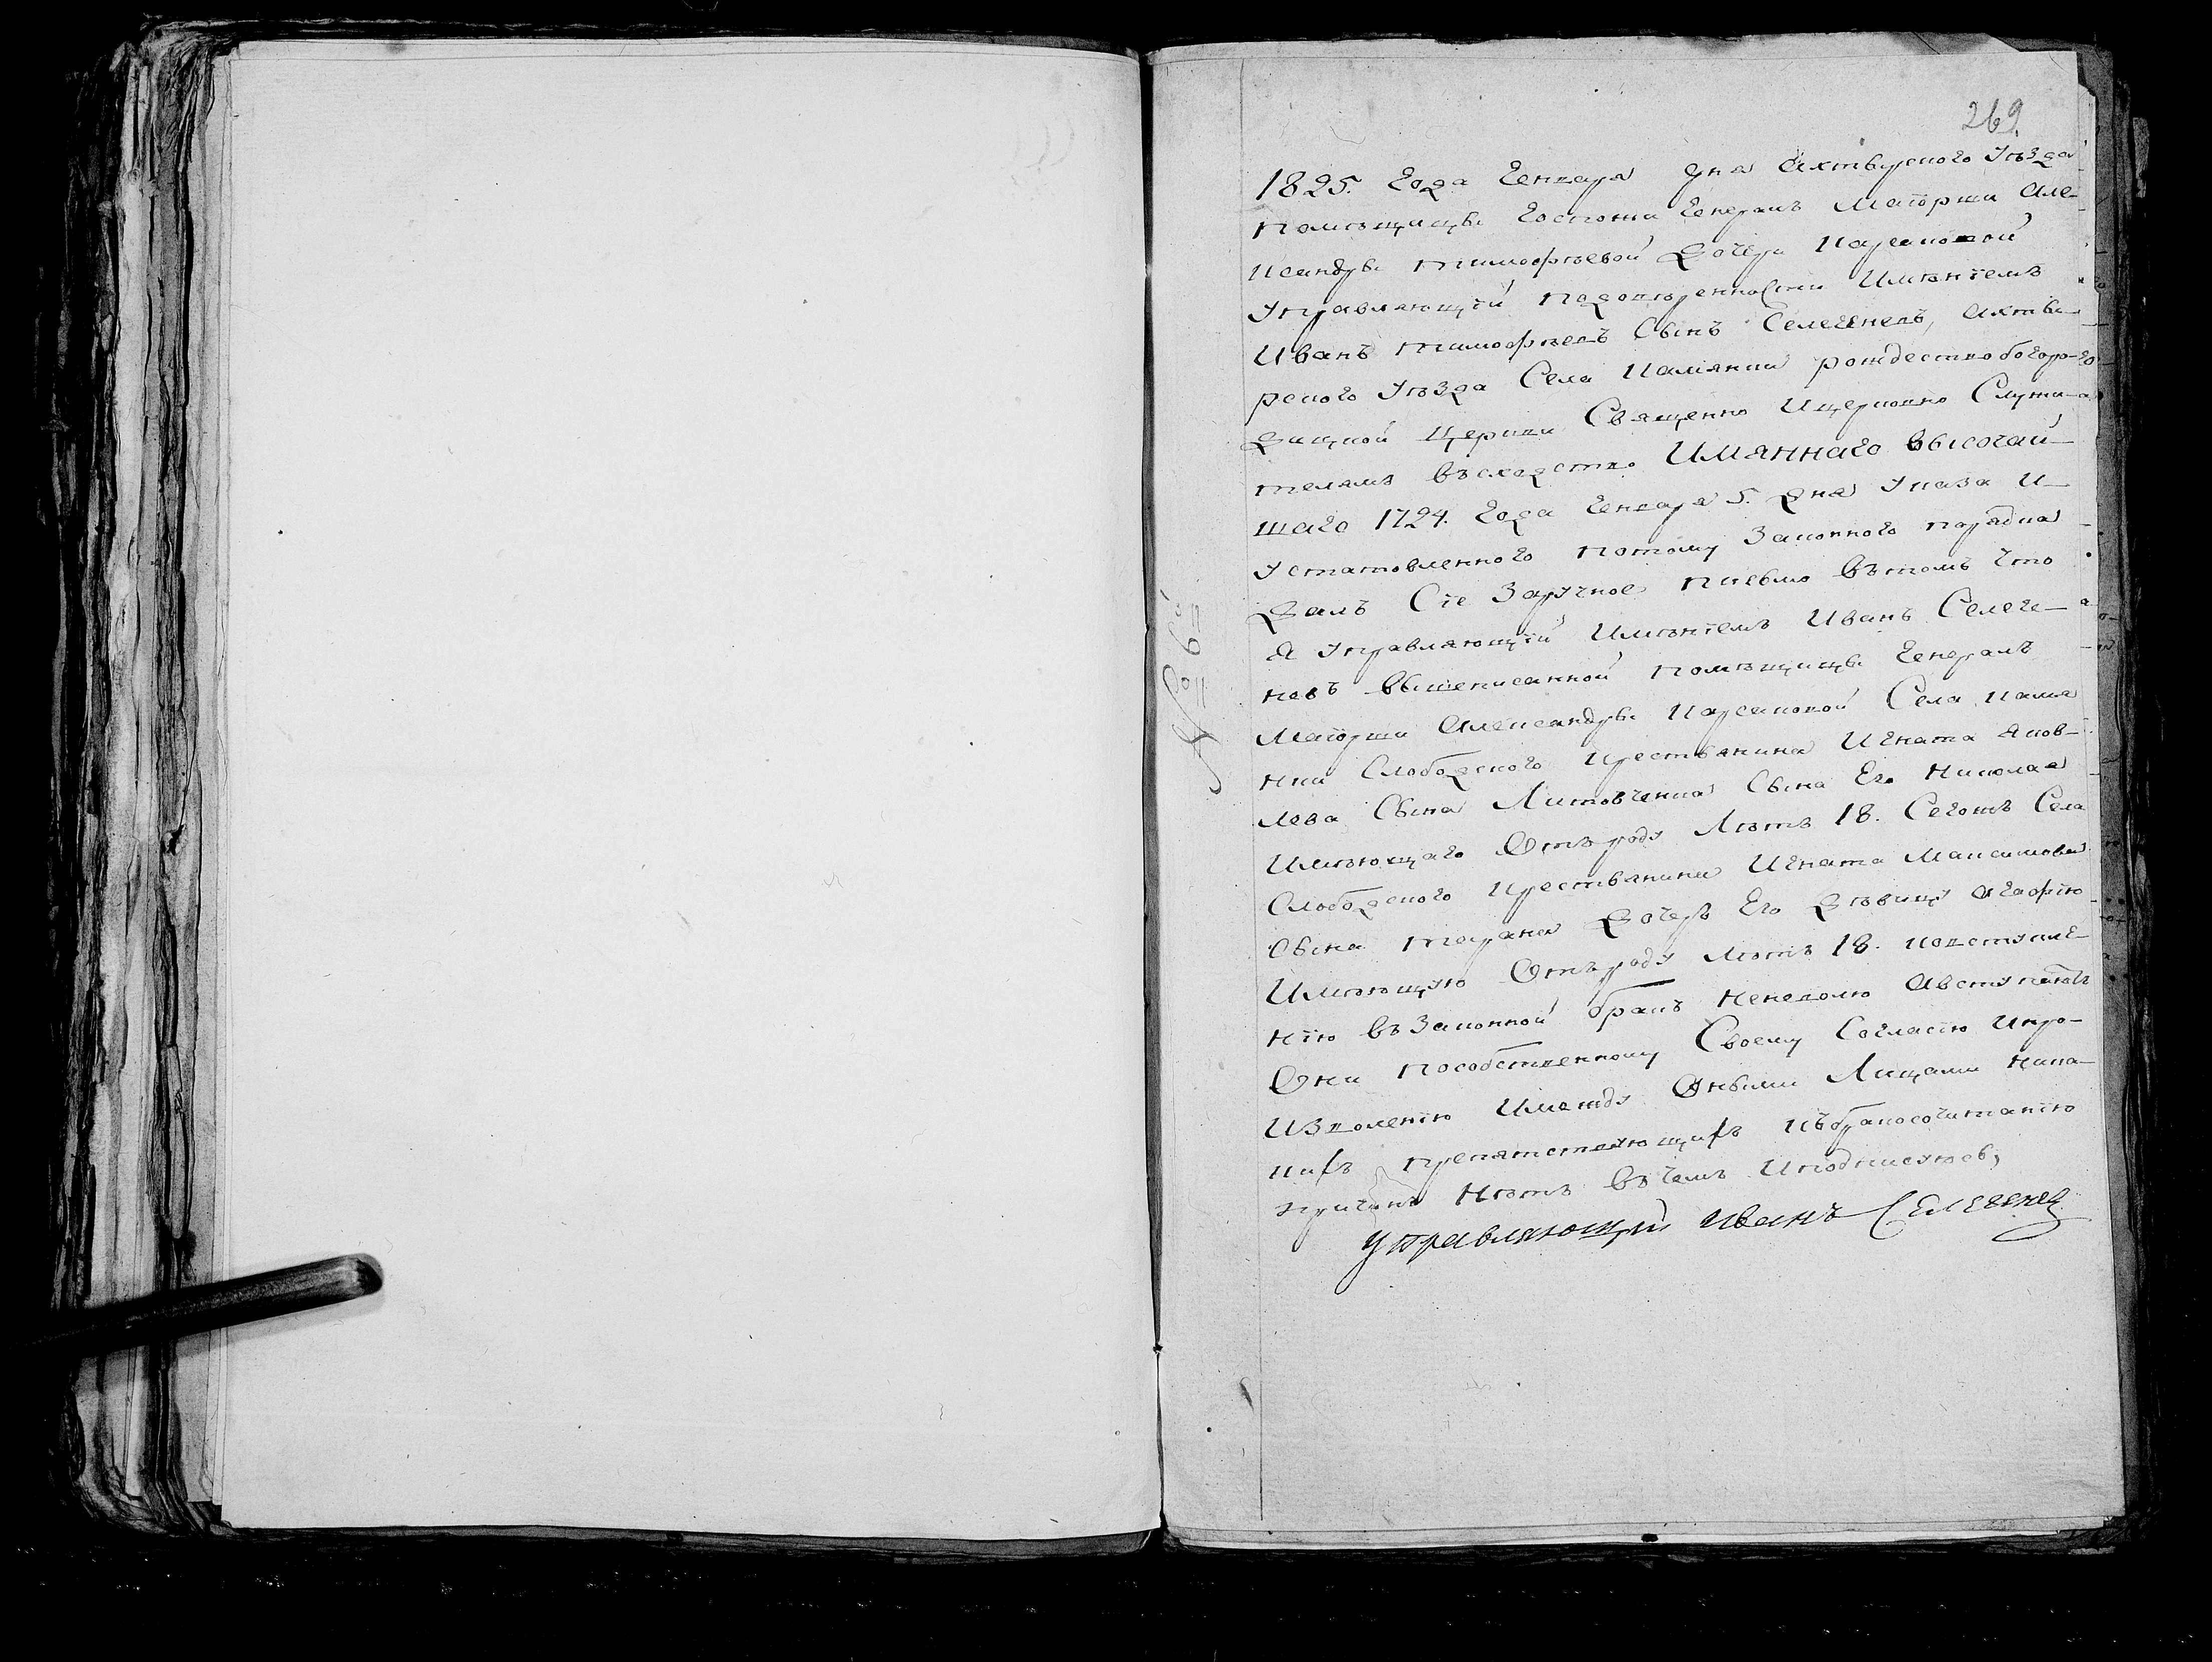 269.
1825. Года Генваря дня Ахтырского Уѣзда
помѣщицы Госпожи Генералъ Маіорши Але-
ксандры тимофѣевой дочери Карсаковой
Управляющій подовѣренности Имѣніемъ
Иванъ тимофѣевъ Сынъ Селегеневъ, Ахты-
рского Уѣзда Села Камянки рождествобогоро-
дицкой Церкви Священно Ицерковно Служи-
телямъ въсходство Имяннаго высочай-
шаго 1724. Года Генваря 5. дня Указа И-
Установленного потому Законного порядка
далъ Сіе Заручное письмо вътомъ что
Я Управляющій Имѣніемъ Иванъ Селеге-
невъ вышеписанной помѣщицы Генералъ
Маіорши Александры Карсаковой Села Камя
нки Слободского Крестьянина Игната Яков-
лева Сына Литовченка Сына Его Николая
Имѣющаго Отъ роду Лѣтъ 18. Сегожъ Села
Слободского Крестьянина Игната Максимова
Сына тарана дочерь Его дѣвицу Агафію
Имѣющую Отъ роду Лѣтъ 18. Ковступле-
нію въ Законной бракъ Неневолю Авступаютъ
Они пособственному Своему Согласію Ипро-
Изволенію Имежду Оными Лицами Ника-
кихъ препятствующихъ Къбракосочитанію
причинъ Нѣтъ въ Чемъ Иподписуюсь,
управляющий иванъ Селегенев
№ 69й